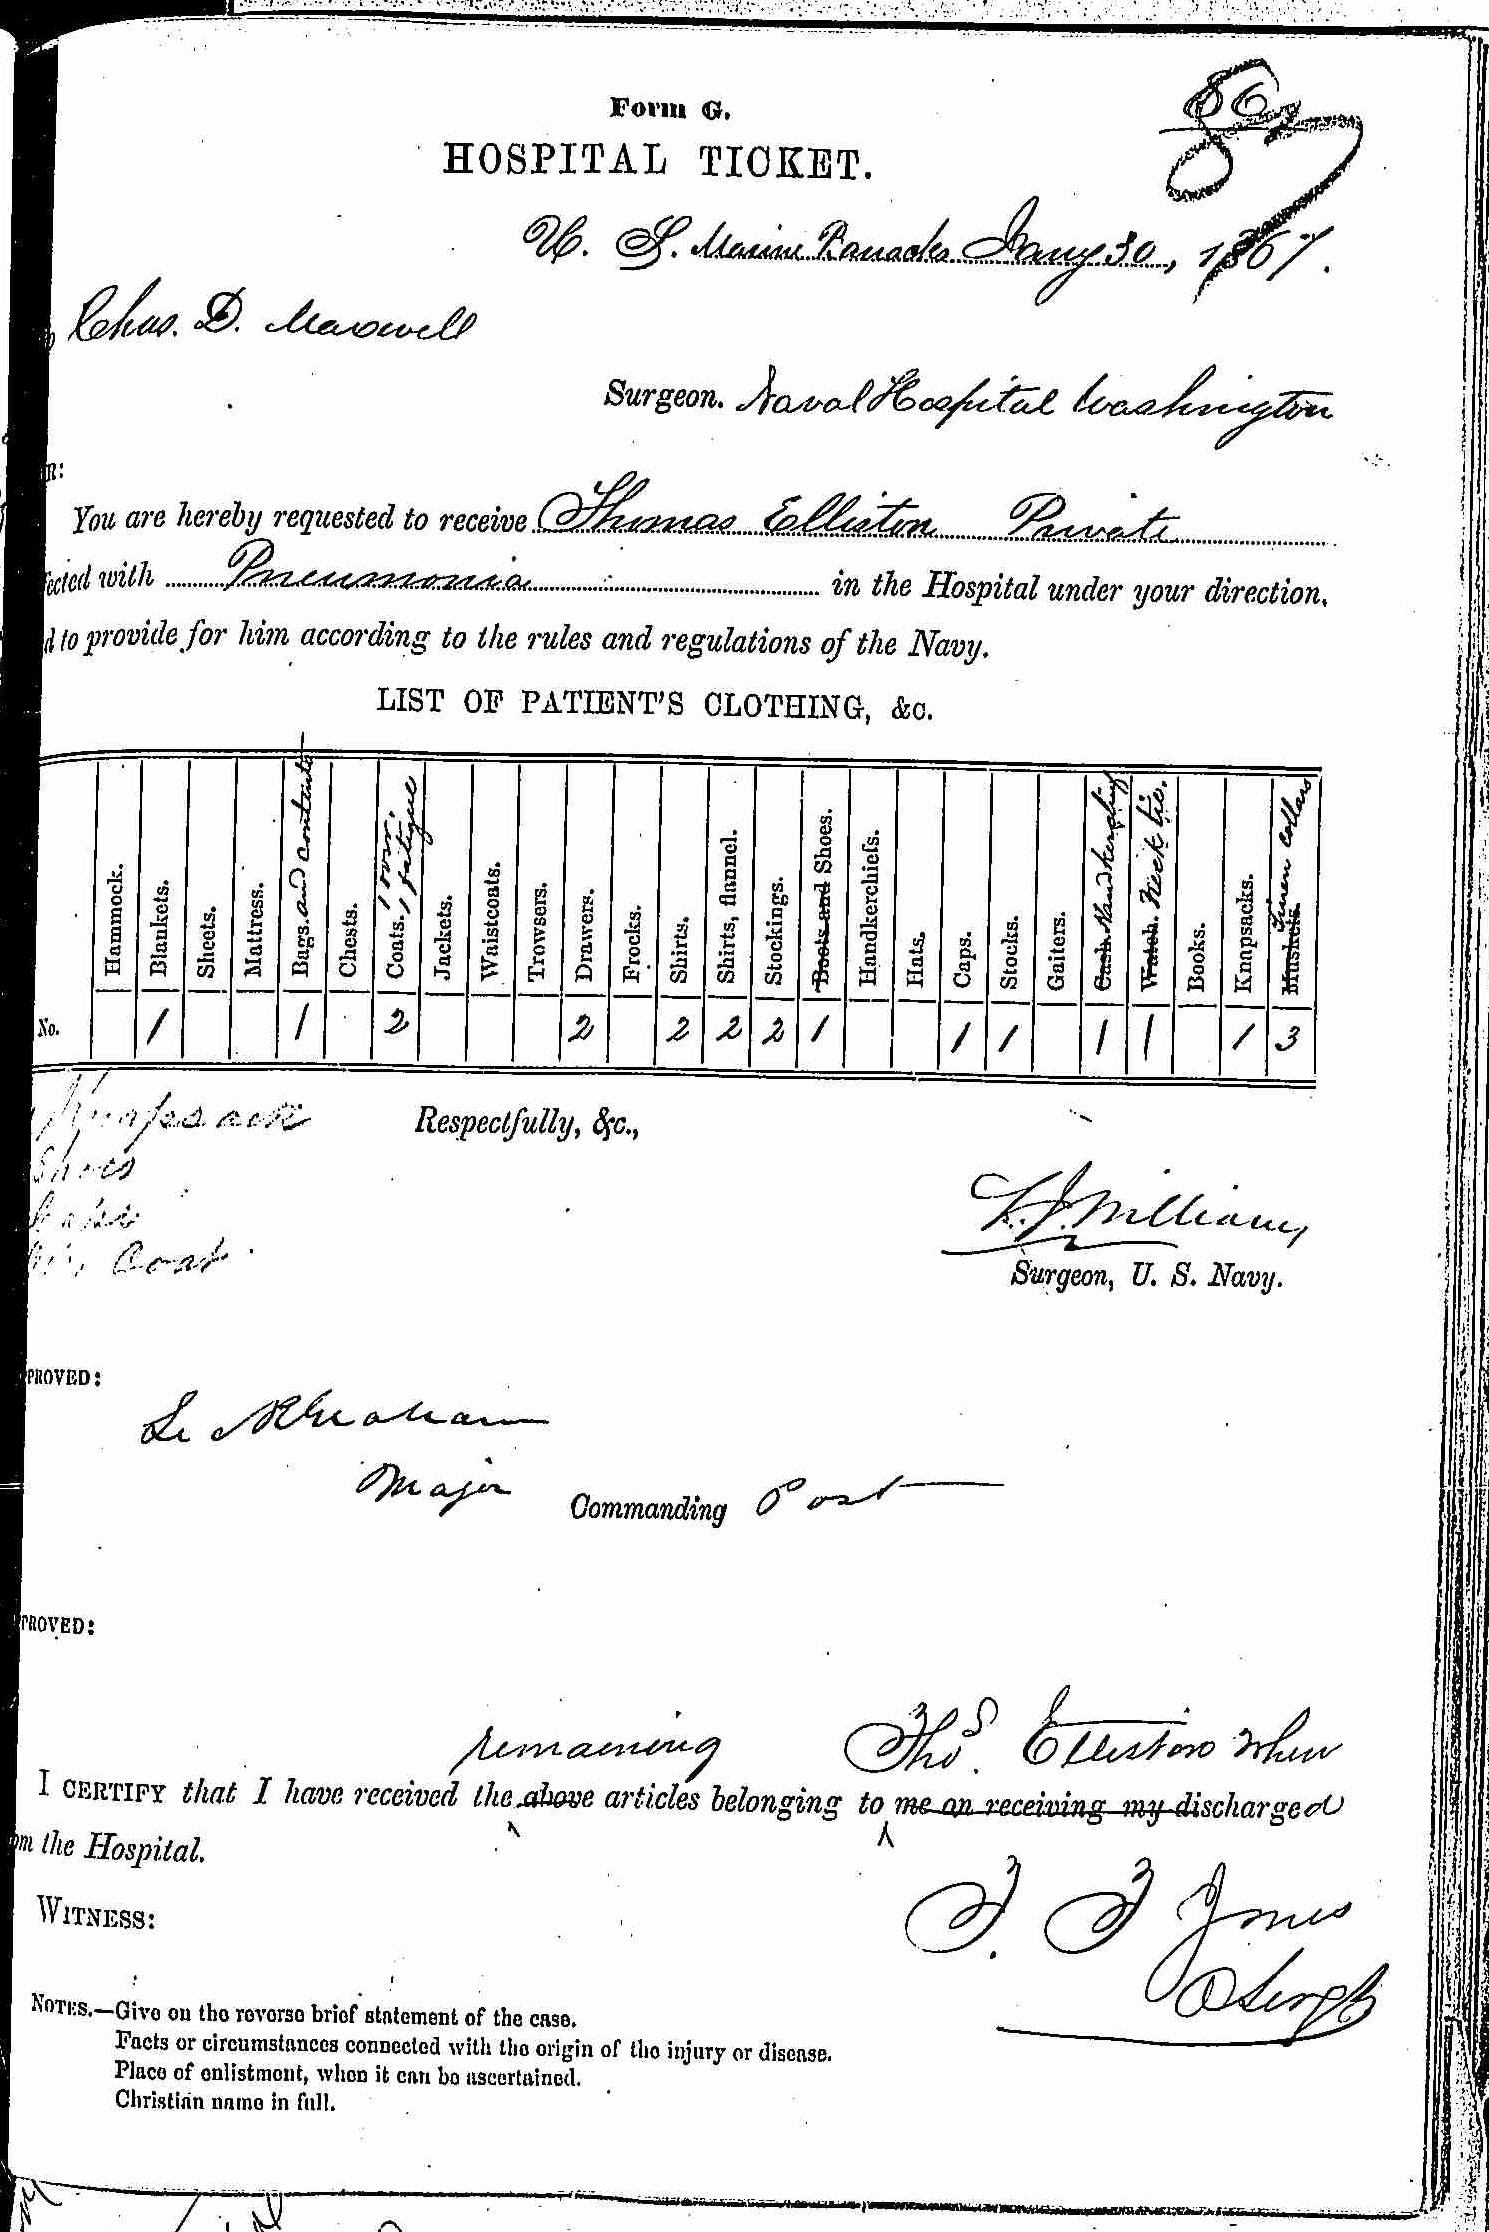 Form G.
HOSPITAL TICKET.
U. S. Marine Barracks Jany 30, 1867.
Chas. D. Maxwell
Surgeon. Naval Hospital Washington
You are hereby requested to receive Thomas Elliston Private
with Pneumonia in the Hospital under your direction,
to provide for him according to the rules and regulations of the Navy.
LIST OF PATIENT'S CLOTHING, &c.
Hammock. Blankets. Sheets. Mattress. Bags. and contents Chests. Coats. 1 over. 1 fatigue Jackets. Waistcoats. Trowsers. Drawers. Frocks. Shirts. Shirts, flannel. Stockings. Boots and Shoes. Handkerchiefs. Hats. Caps. Stocks. Gaiters. Cash. Handkerchief Watch. Neck tie. Books. Knapsacks. Muskets. Linen collars
No. 1 1 2 2 2 2 2 1 1 1 1 1 1 3
Knapsack Respectfully, &c.,
Shoes
Coat
Williams
Surgeon, U. S. Navy.
Graham
Major Commanding Post
remaining Thos. Elliston when
I CERTIFY that I have received the above articles belonging to me on receiving my discharged
the Hospital.
WITNESS: F. F. Jones
O Sergt
NOTES.—Give on the reverse brief statement of the case.
Facts or circumstances connected with the origin of the injury or disease.
Place of enlistment, when it can be ascertained.
Christian name in full.